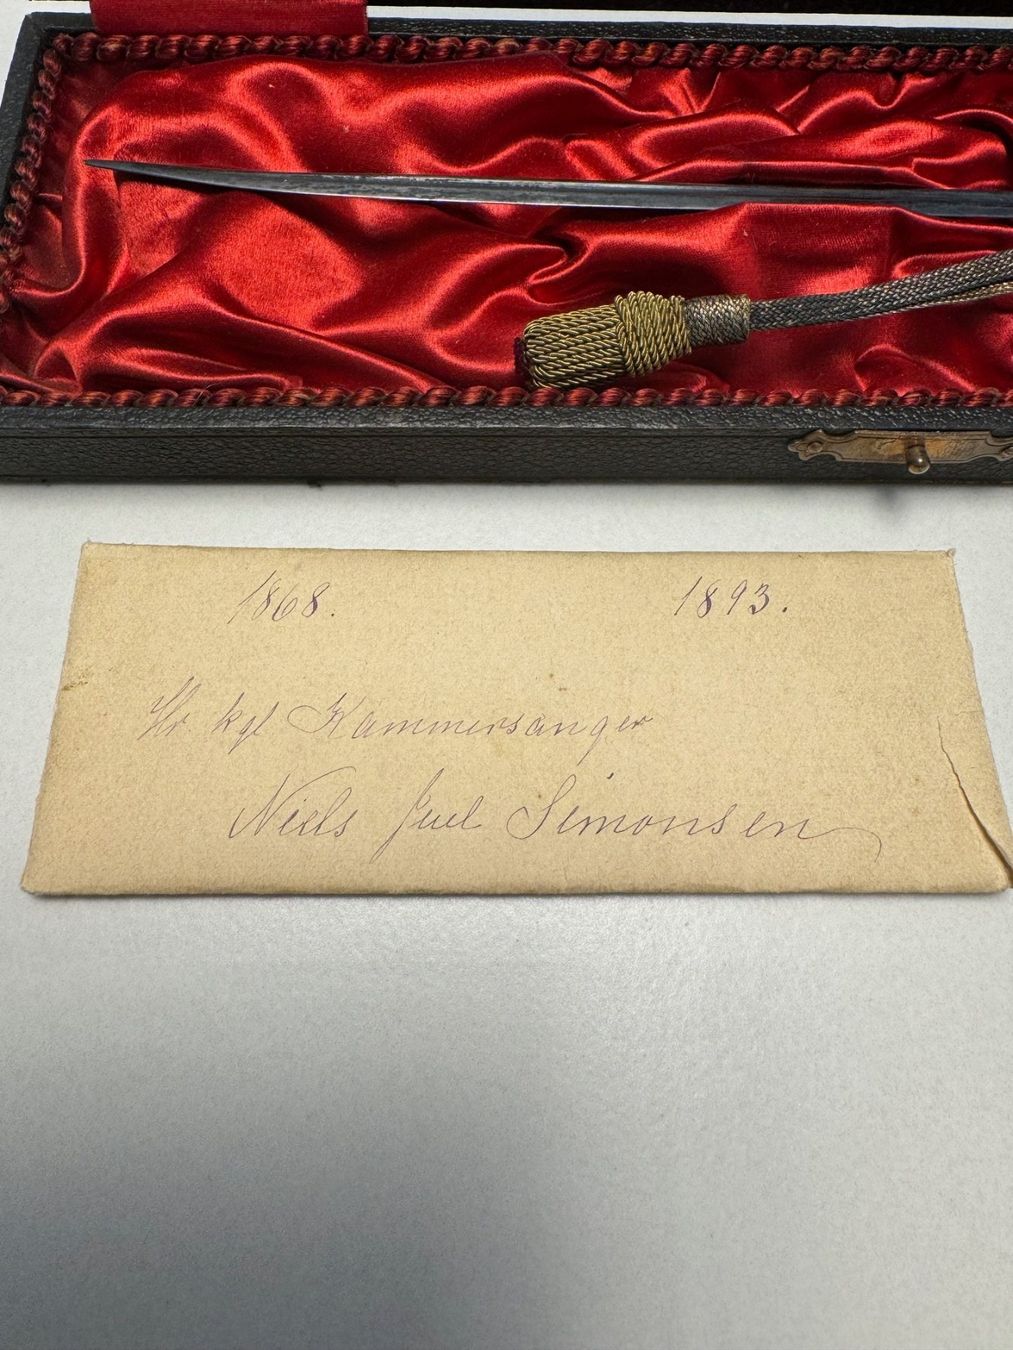 1868. 1893.
Hr kgl Kammersanger
Niels Juel Simonsen